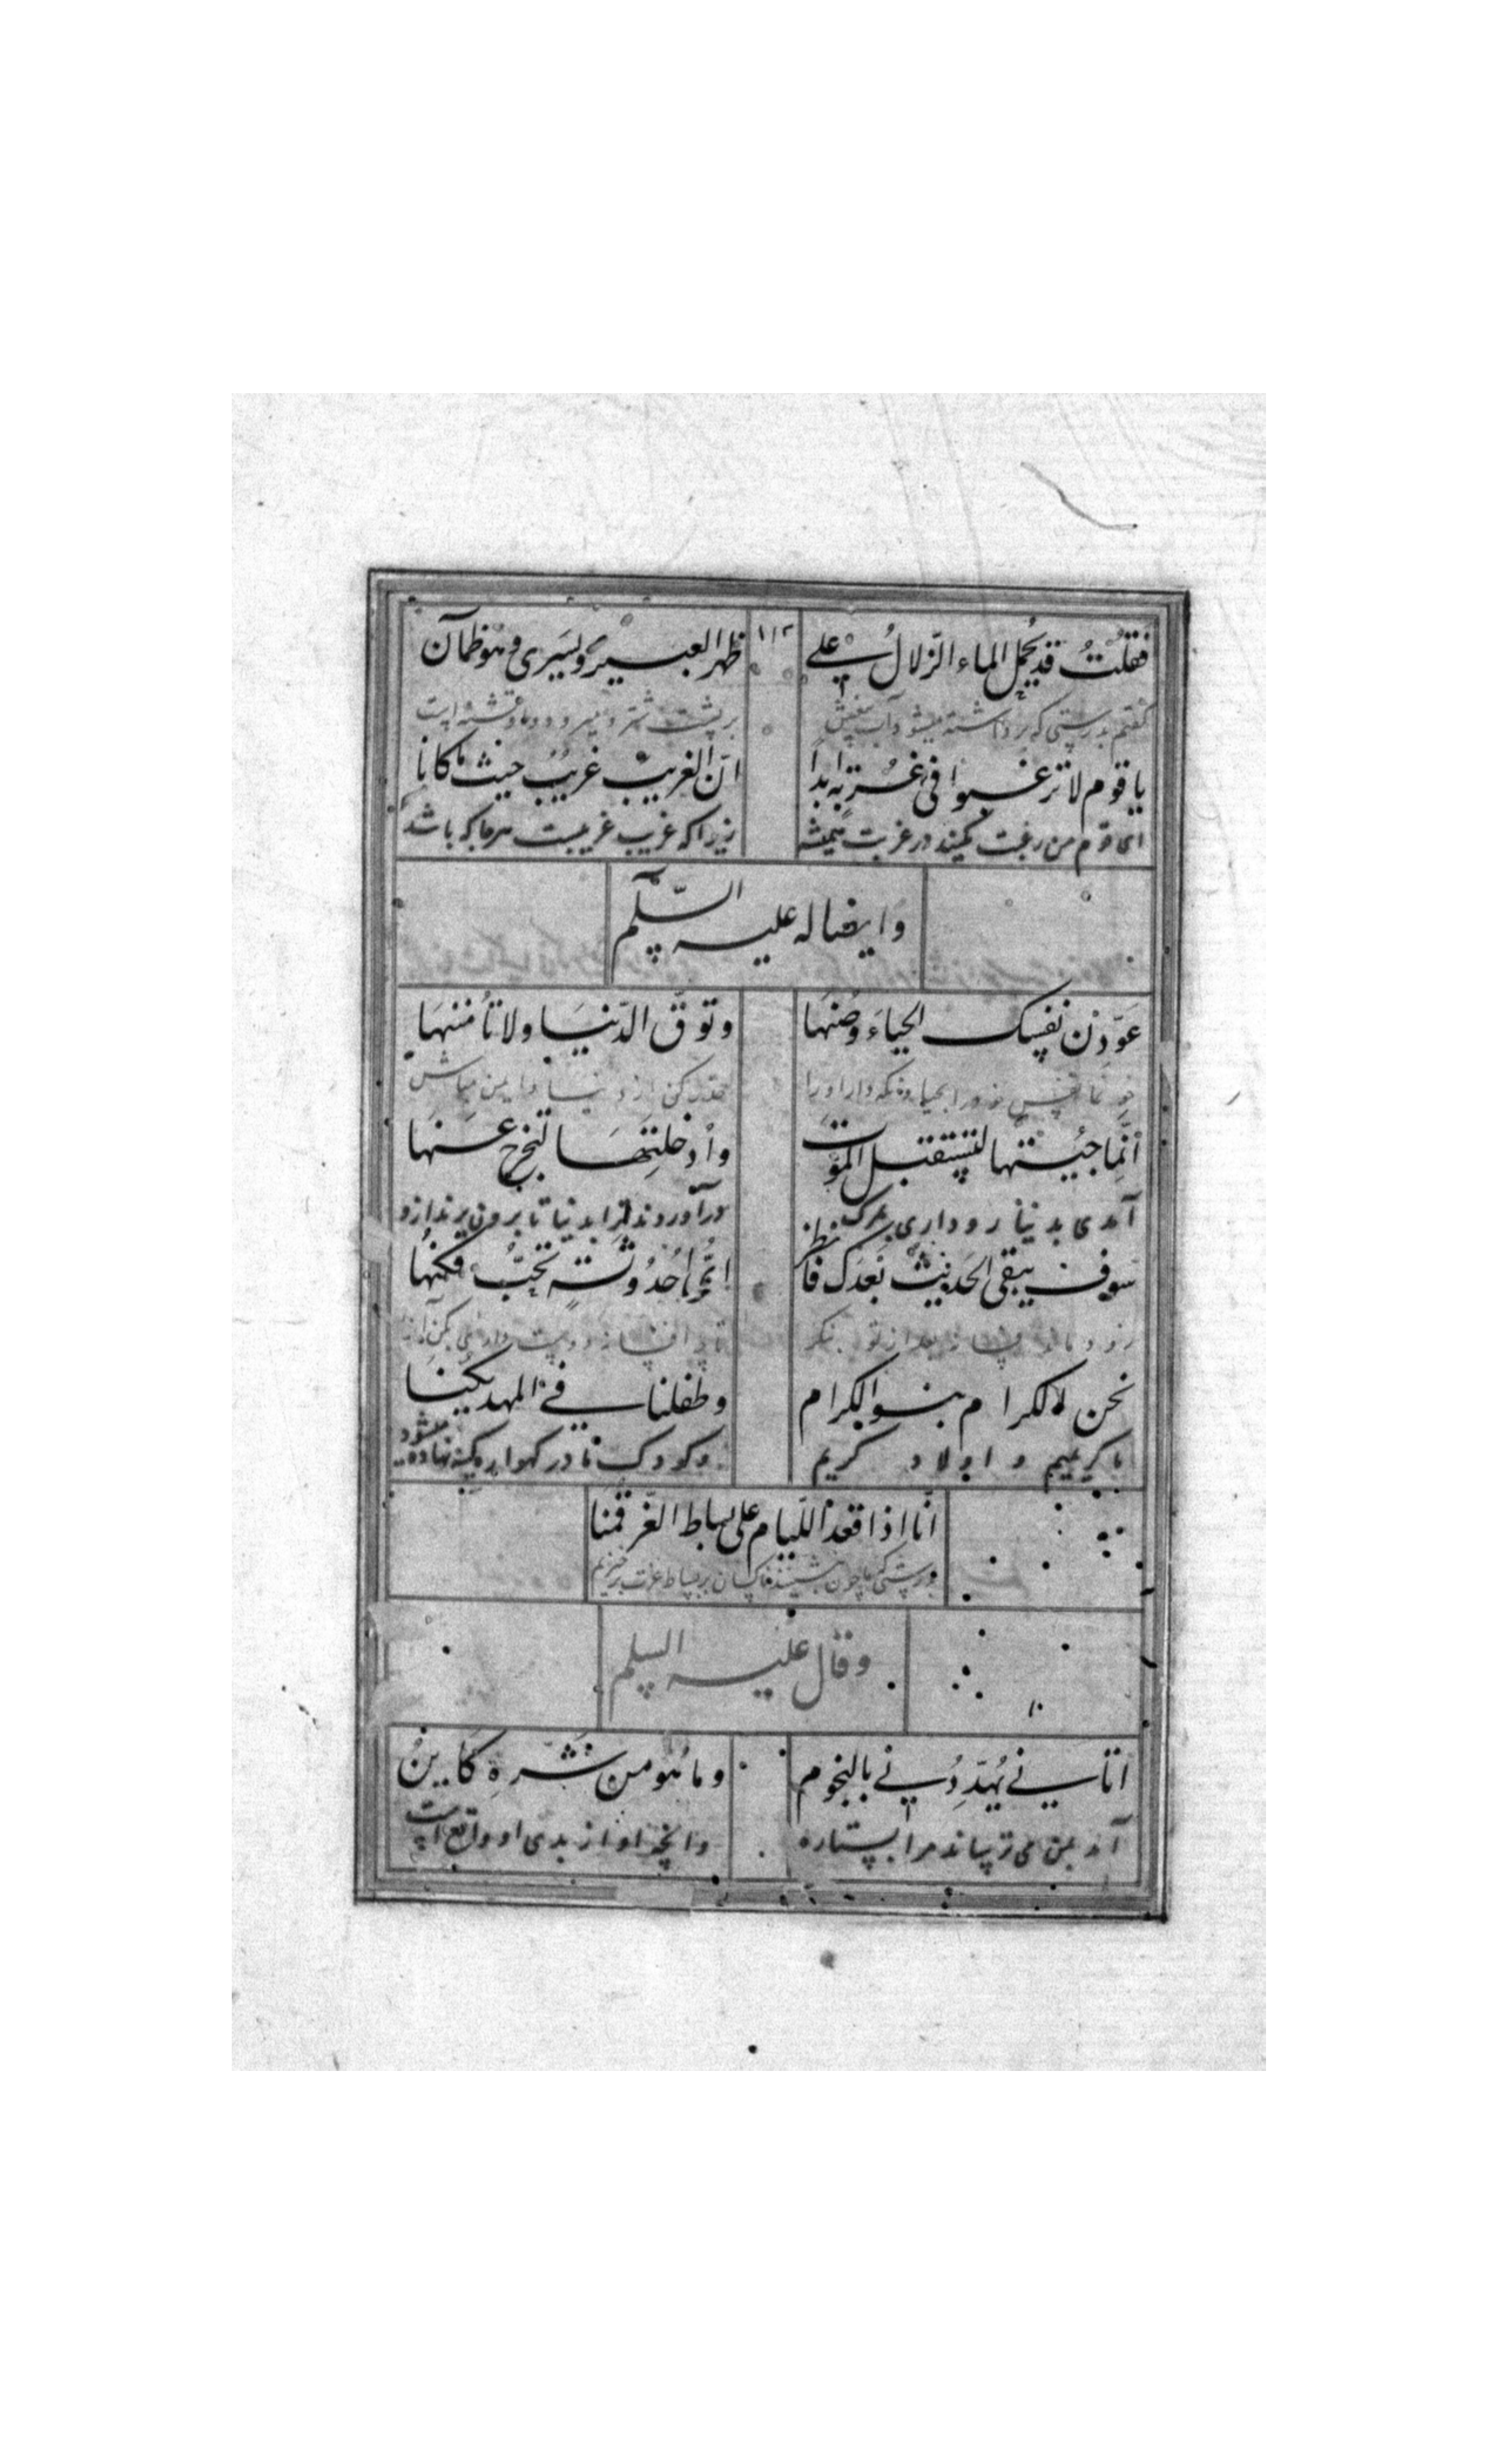 فقلتُ قد يُحمل الماء الزّلالُ على ظهر البعير ويَسرى وهو ظمآن
١١٢
كفتم بدرستى كه برداشته ميشود آب بر پشت شتر و ميرود و او تشنه است
يا قوم لا ترغبوا فى غربة ابداً انّ الغريب غريبٌ حيث ما كانا
اى قوم من رغبت مكنيد در غربت هميشه زيرا كه غريب غريبست هرجا كه باشد
وايضا له عليه السّلم
عَوّدن نفسك الحياءَ وصُنها وتوقّ الدّنيَا ولا تأمننها
نفس خود را بحيا ونكه دار او را حذر كن از دنيا و ايمن مباش
أنّما جئتها لتستقبل الموت وأدخلتَها لتخرج عنها
آمدى بدنيا رو دارى بمرك درآوردند ترا بدنيا تا برون برند ازو
سوف يبقى الحديث بَعدَك فانظر ايّما اُحدُوثةٍ تحبُّ فكنها
زود بماند بعد از تو بنكر تا چه افسانه دوست دارى
نحن الكرام بنو الكرام وطفلنا فى المهد يكنا
ما كريميم و اولاد كريم وكودك ما در كهواره كنيه نهاده ميشود
انّا اذا قعد اللّيام على بساط العزّ قمنا
بدرستى كه ما چون بنشينند ناكسان بر بساط عزت برخيزيم
وقال عليه السلم
اتانى يُهدّدُنى بالنجوم وما هو من شرّه كاينٌ
آمد بمن مى ترساند مرا بستاره وانچه او از بدى او واقع است